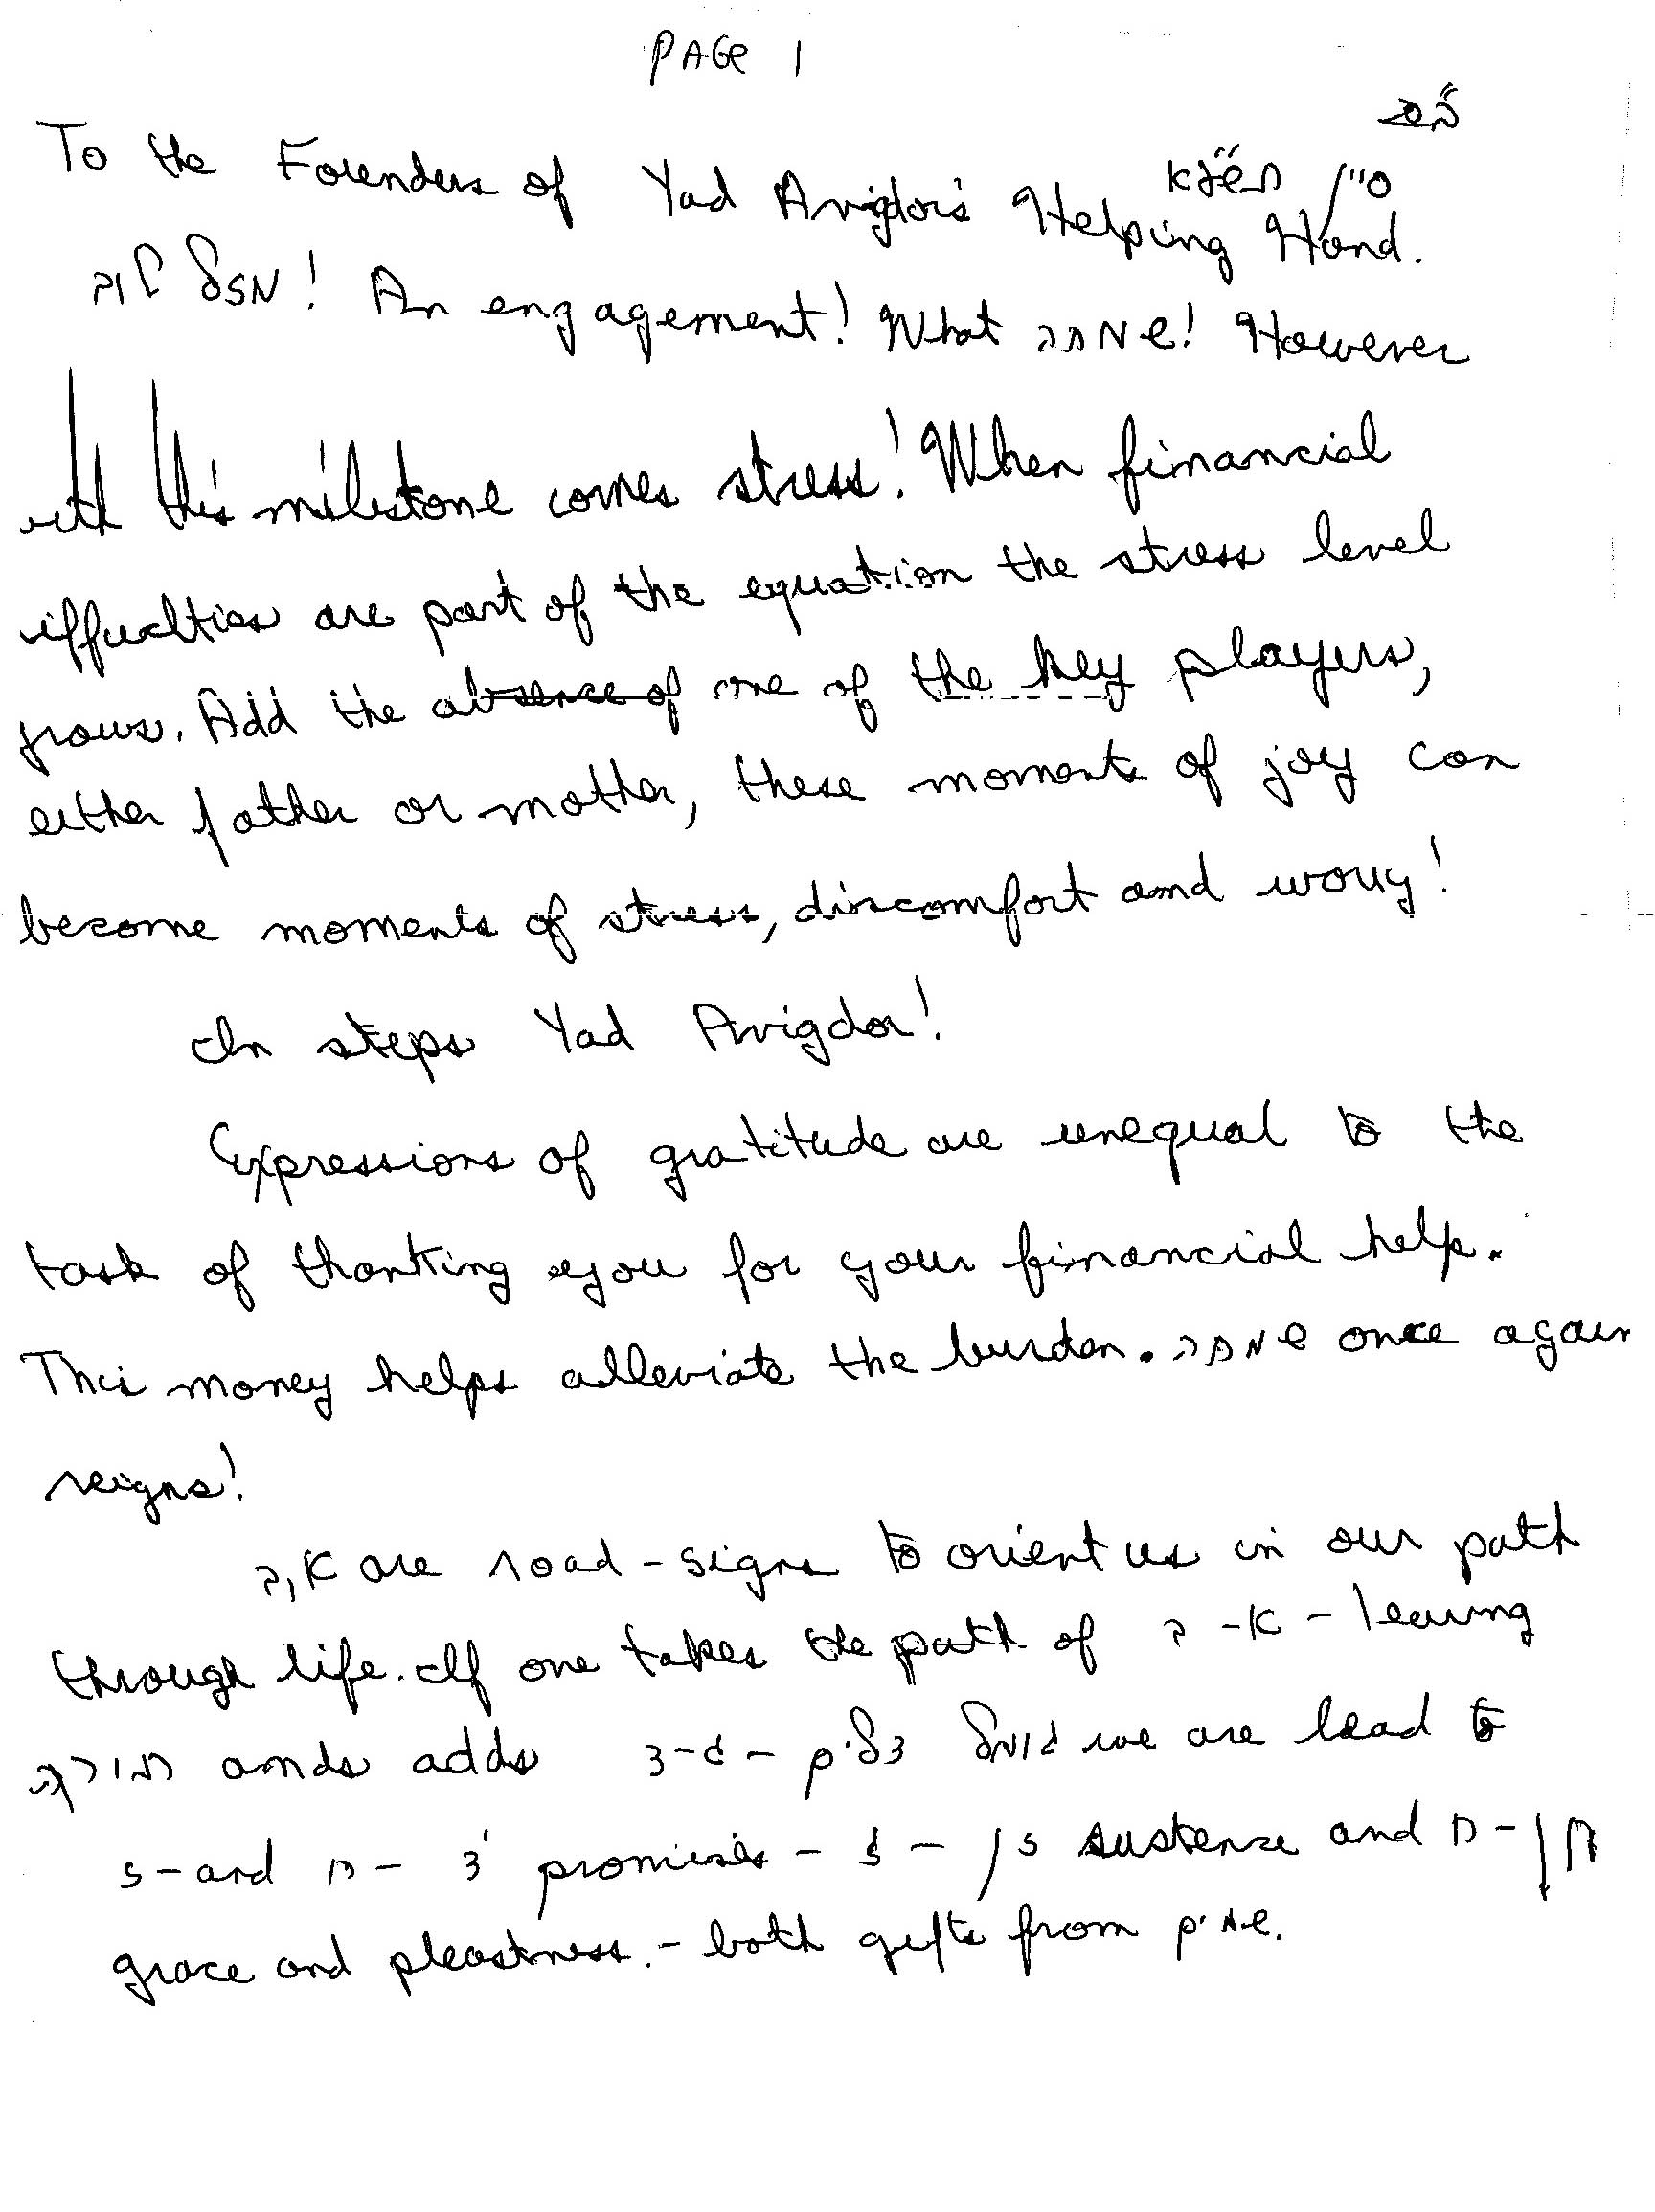 PAGE 1
בס"ד
סיון תשע"א
To the Founders of Yad Avigdor's Helping Hand.
מזל טוב! An engagement! What שמחה! However
with this milestone comes stress! When financial
difficulties are part of the equation the stress level
grows. Add the absence of one of the key players,
either father or mother, these moments of joy can
become moments of stress, discomfort and worry!
In steps Yad Avigdor!
Expressions of gratitude are unequal to the
task of thanking you for your financial help.
This money helps alleviate the burden. שמחה once again
reigns!
א,ב are road-signs to orient us in our path
through life. If one takes the path of א-ב - learning
תורה ands adds ג-ד - גומל דלים we are lead to
ז-and ח- ד' promises - ז - זן sustenze and ח - חן
grace and pleastness. - both gifts from שמים.